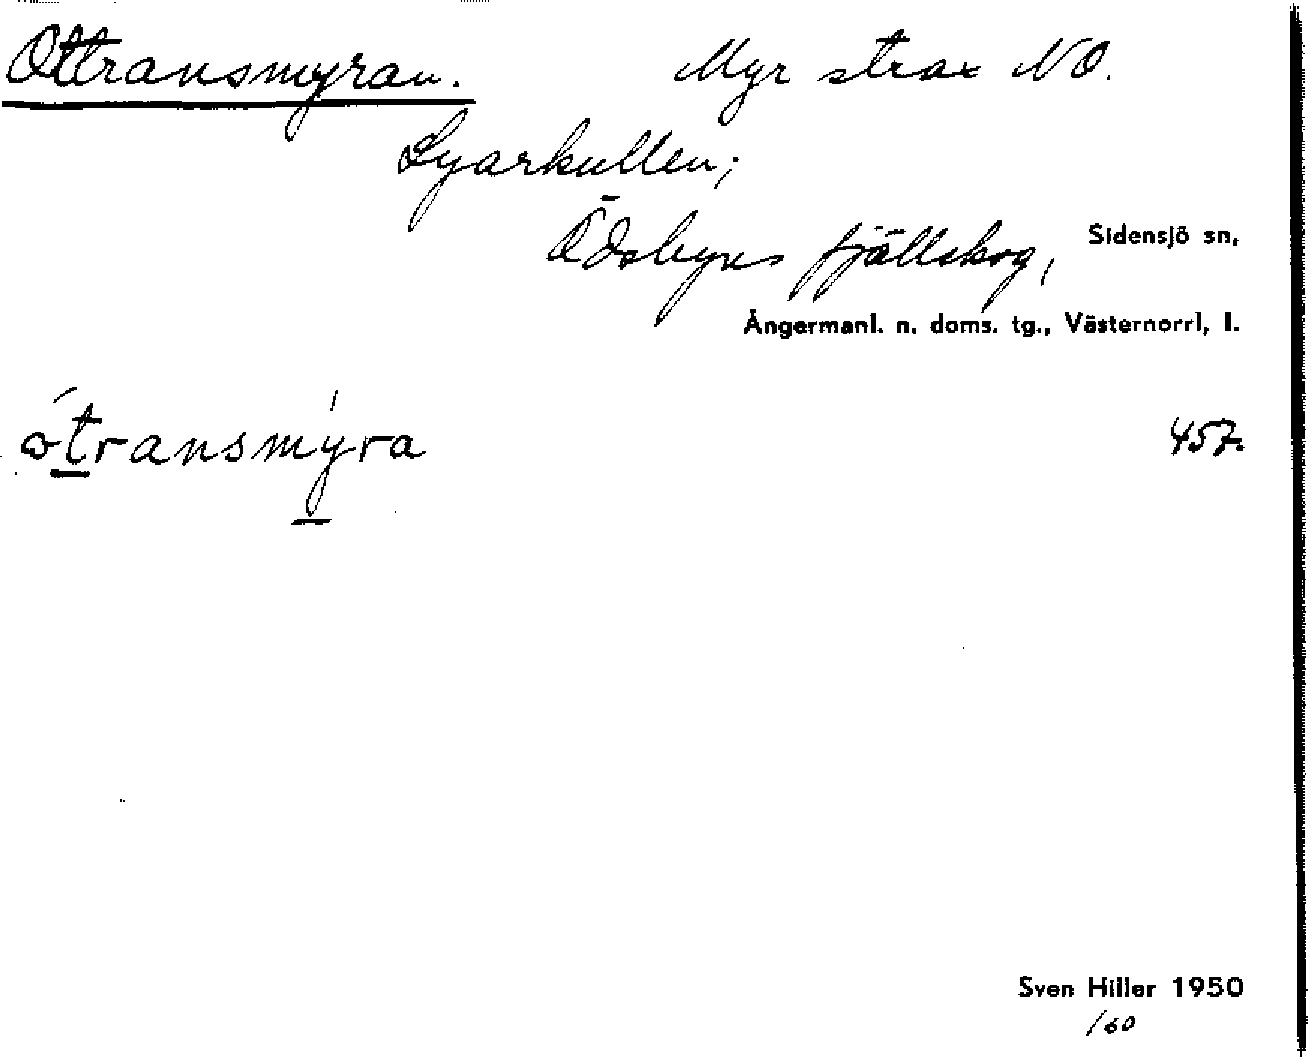 Ottransmyran. Myr strax NO.
Lyarkullen;
Ödsbyns fjällskog, Sidensjö sn,
Ångermanl. n. doms. tg., Västernorrl, l.
ótransmy̍ra 457.
Sven Hiller 1950
/60